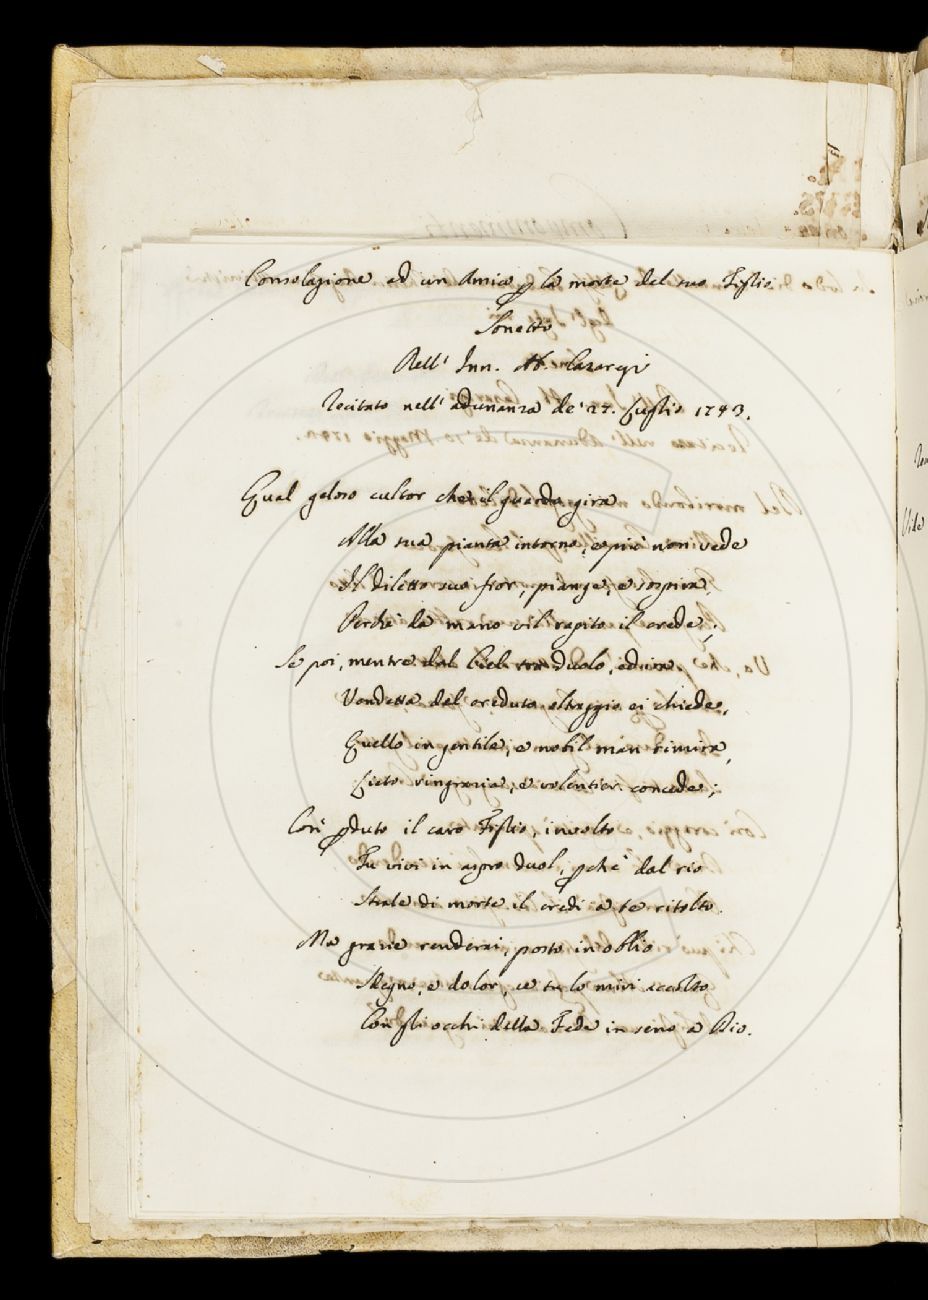 Consolazione ad un Amico p la morte del suo Figlio
Sonetto
Dell' Inn. Ab. Casaregi
Recitato nell' adunanza de' 27. Luglio 1743.
Qual geloso cultor che il guardo gira
Alla sua pianta intorno, e più non vede
Il diletto suo fior, piange, e sospira,
Perchè da mano vil rapito il crede;
Se poi, mentre dal Ciel tra duolo, ed ira
Vendetta del creduto oltraggio ei chiede,
Quello in gentile, e nobil man rimira,
Lieto ringrazia, e volentier concede;
Così pduto il caro Figlio, involto
Tu vivi in aspro duol, pchè dal rio
Strale di morte il credi a te ritolto.
Ma grazie renderai, posto in oblio
Sdegno, e dolor, se tu lo miri accolto
Con gli occhi della Fede in seno a Dio.